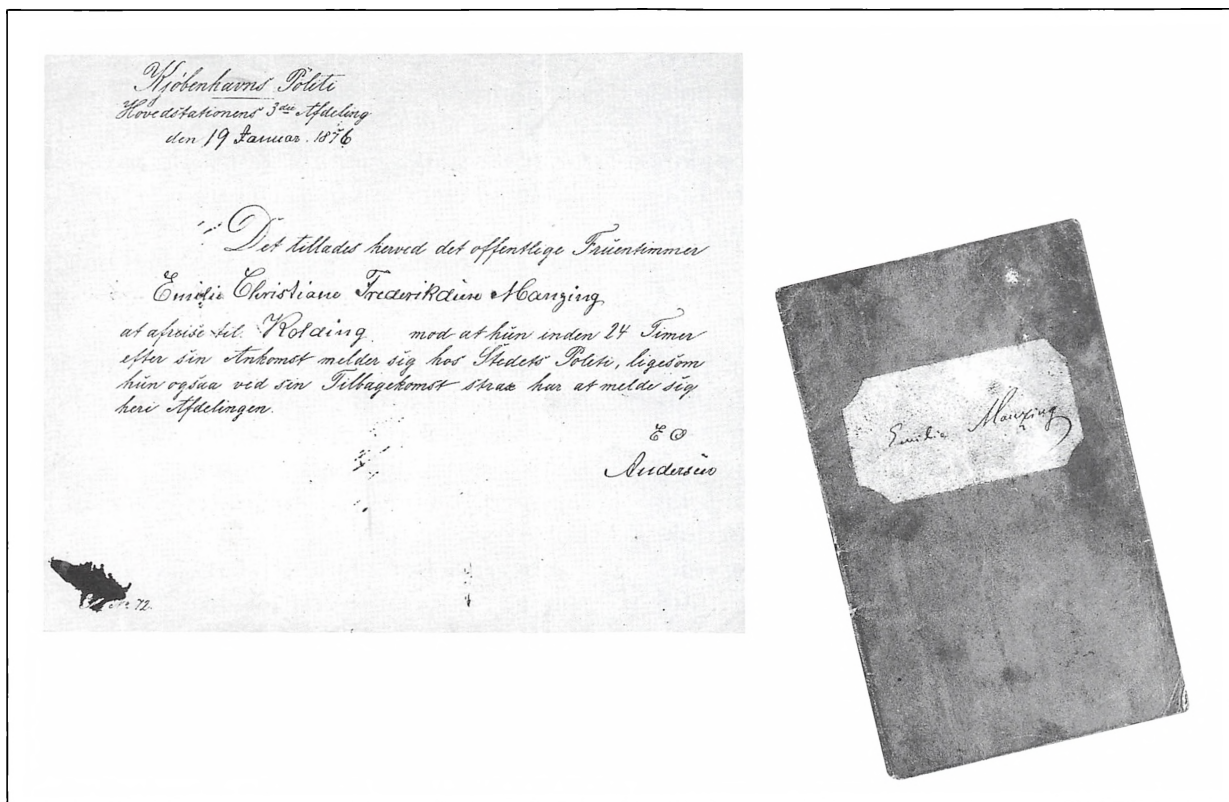 Kjøbenhavns Politi
Hovedstationens 3die Afdeling
den 19 Januar 1876
Det tillades herved det offentlige Fruentimmer
Emilie Christiane Frederikdine Manzing
at afreise til Kolding mod at hun inden 24 Timer
efter sin Ankomst melder sig hos Stedets Politi, ligesom
hun ogsaa ved sin Tilbagekomst strax har at melde sig
her i Afdelingen.
E O
Andersen
72.
Emilie Manzing